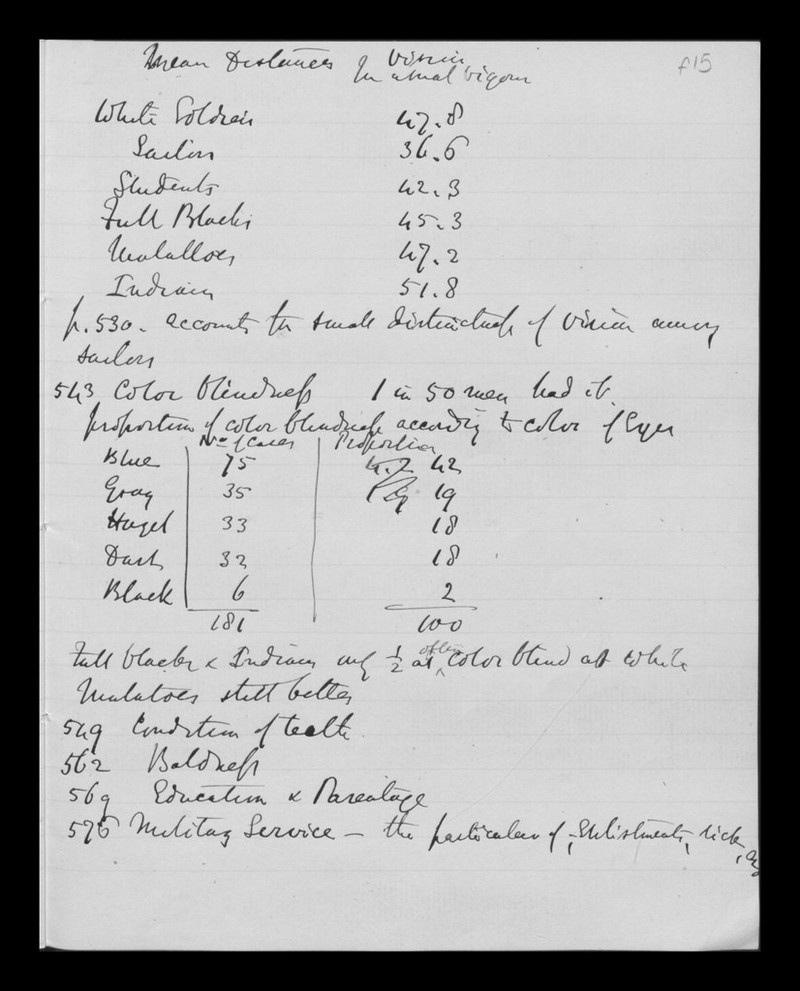 Mean Distances of Vision
In usual vigour
f15
White Soldiers 47.8
Sailors 36.6
Students 42.3
Full Blacks 45.3
Mulattoes 47.2
Indians 51.8
p. 530. accounts for small distinctness of vision among
sailors
543 Color blindness 1 in 50 men had it.
proportion of color blindness according to color of Eyes
No of Cases Proportion
Blue 75 42
Gray 35 19
Hazel 33 18
Dark 32 18
Black 6 2
181 100
Full blacks & Indians only ½ as often color blind as white
Mulatoes still better
549 Condition of teeth
562 Baldness
569 Education & Parentage
576 Military Service – the particulars of, Enlistments, sick,